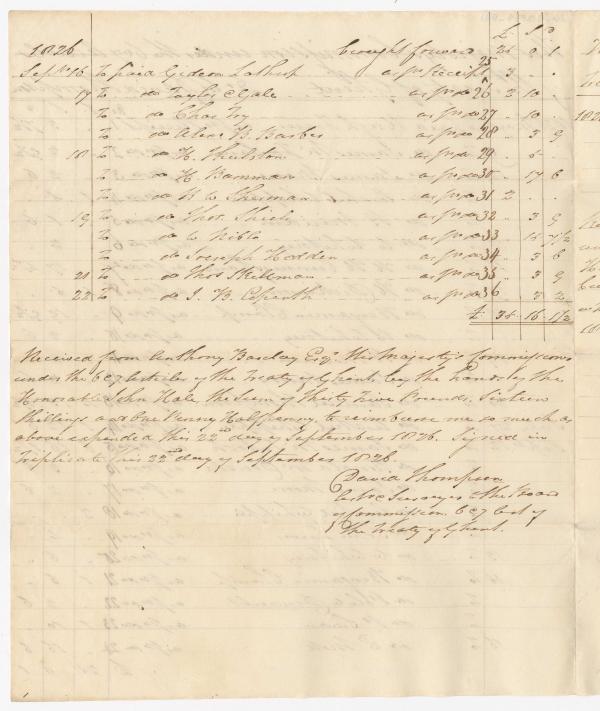 £ S D
1826 brought forward 26 9 1
Septr 16 To paid Gideon Lathrop as pr Receipt 25 3 . .
17 To do Taylor & Gale as pr do 26 2 10 .
To do Chas Fry as pr do 27 .. 10 .
To do Alexr B. Barber as pr do 28 .. 3 9
18 To do H. as pr do 29 ..
To do H. Bamman as pr do 30 .. 17 6
To do H W Sherman as pr do 31 2 . .
19 To do Thos. Shiels as pr do 32 .. 3 9
To do W Niblo as pr do 33 .. 15 7 1/2
To do Joseph Hodden as pr do 34 .. 3 6
21 To do Thos Skillman as pr do 35 .. 3 9
22 To do J. B. as pr do 36 .. 3 2
£ 35 16 1 1/2
Received from Anthony Barclay Esqr His Majesty's Commissioner
under the 6 & 7 articles of the Treaty of Ghent, by the hands of the
Honorable John Hale, the Sum of Thirty Five Pounds, Sixteen
Shillings and One Penny Halfpenny, to reimburse me so much as
above expended this 22d day of September 1826. Signed in
Triplicate this 22d day of September 1826.
David Thompson
Astrr & Surveyor to the Board
of Commission 6 & 7 Art of
the Treaty of Ghent.